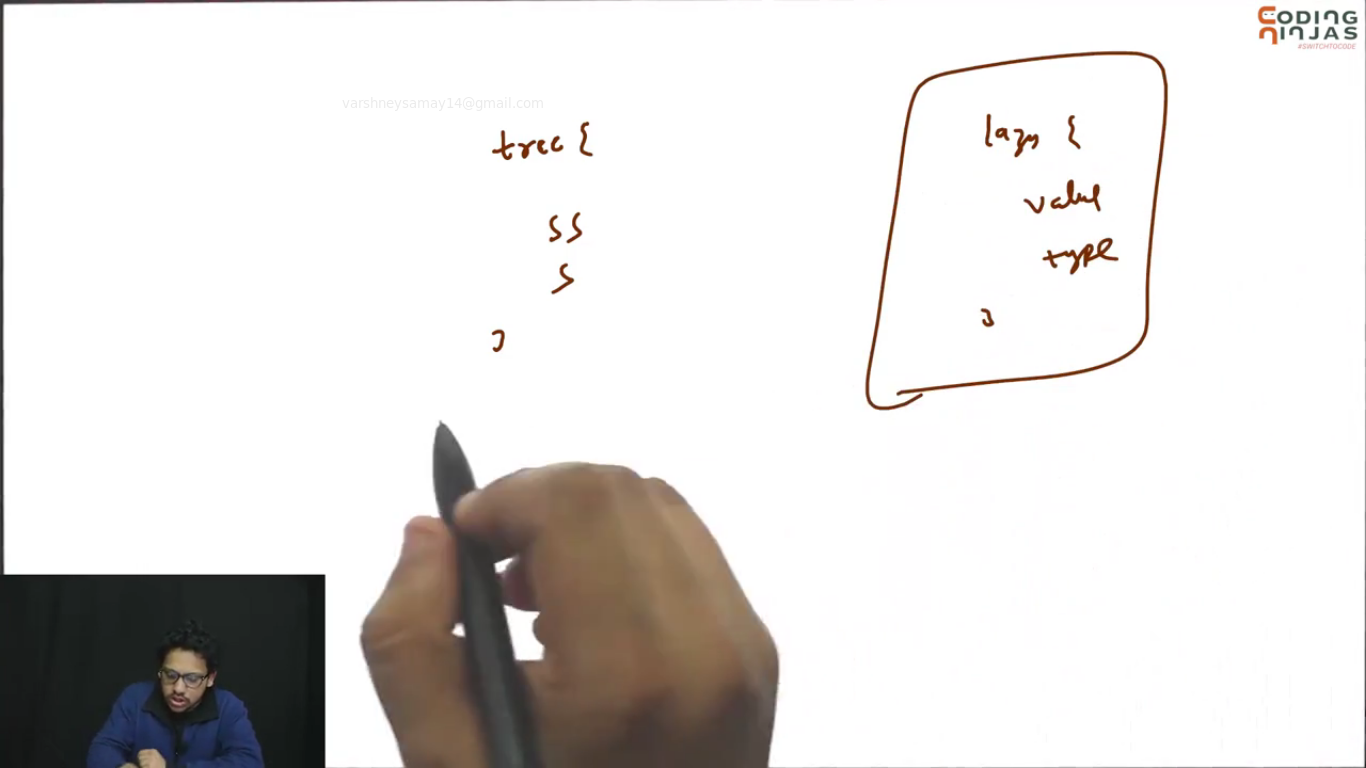 CODING
NINJAS
#SWITCHTOCODE
varshneysamay14@gmail.com
tree {
ss
s
}
lazy {
value
type
}